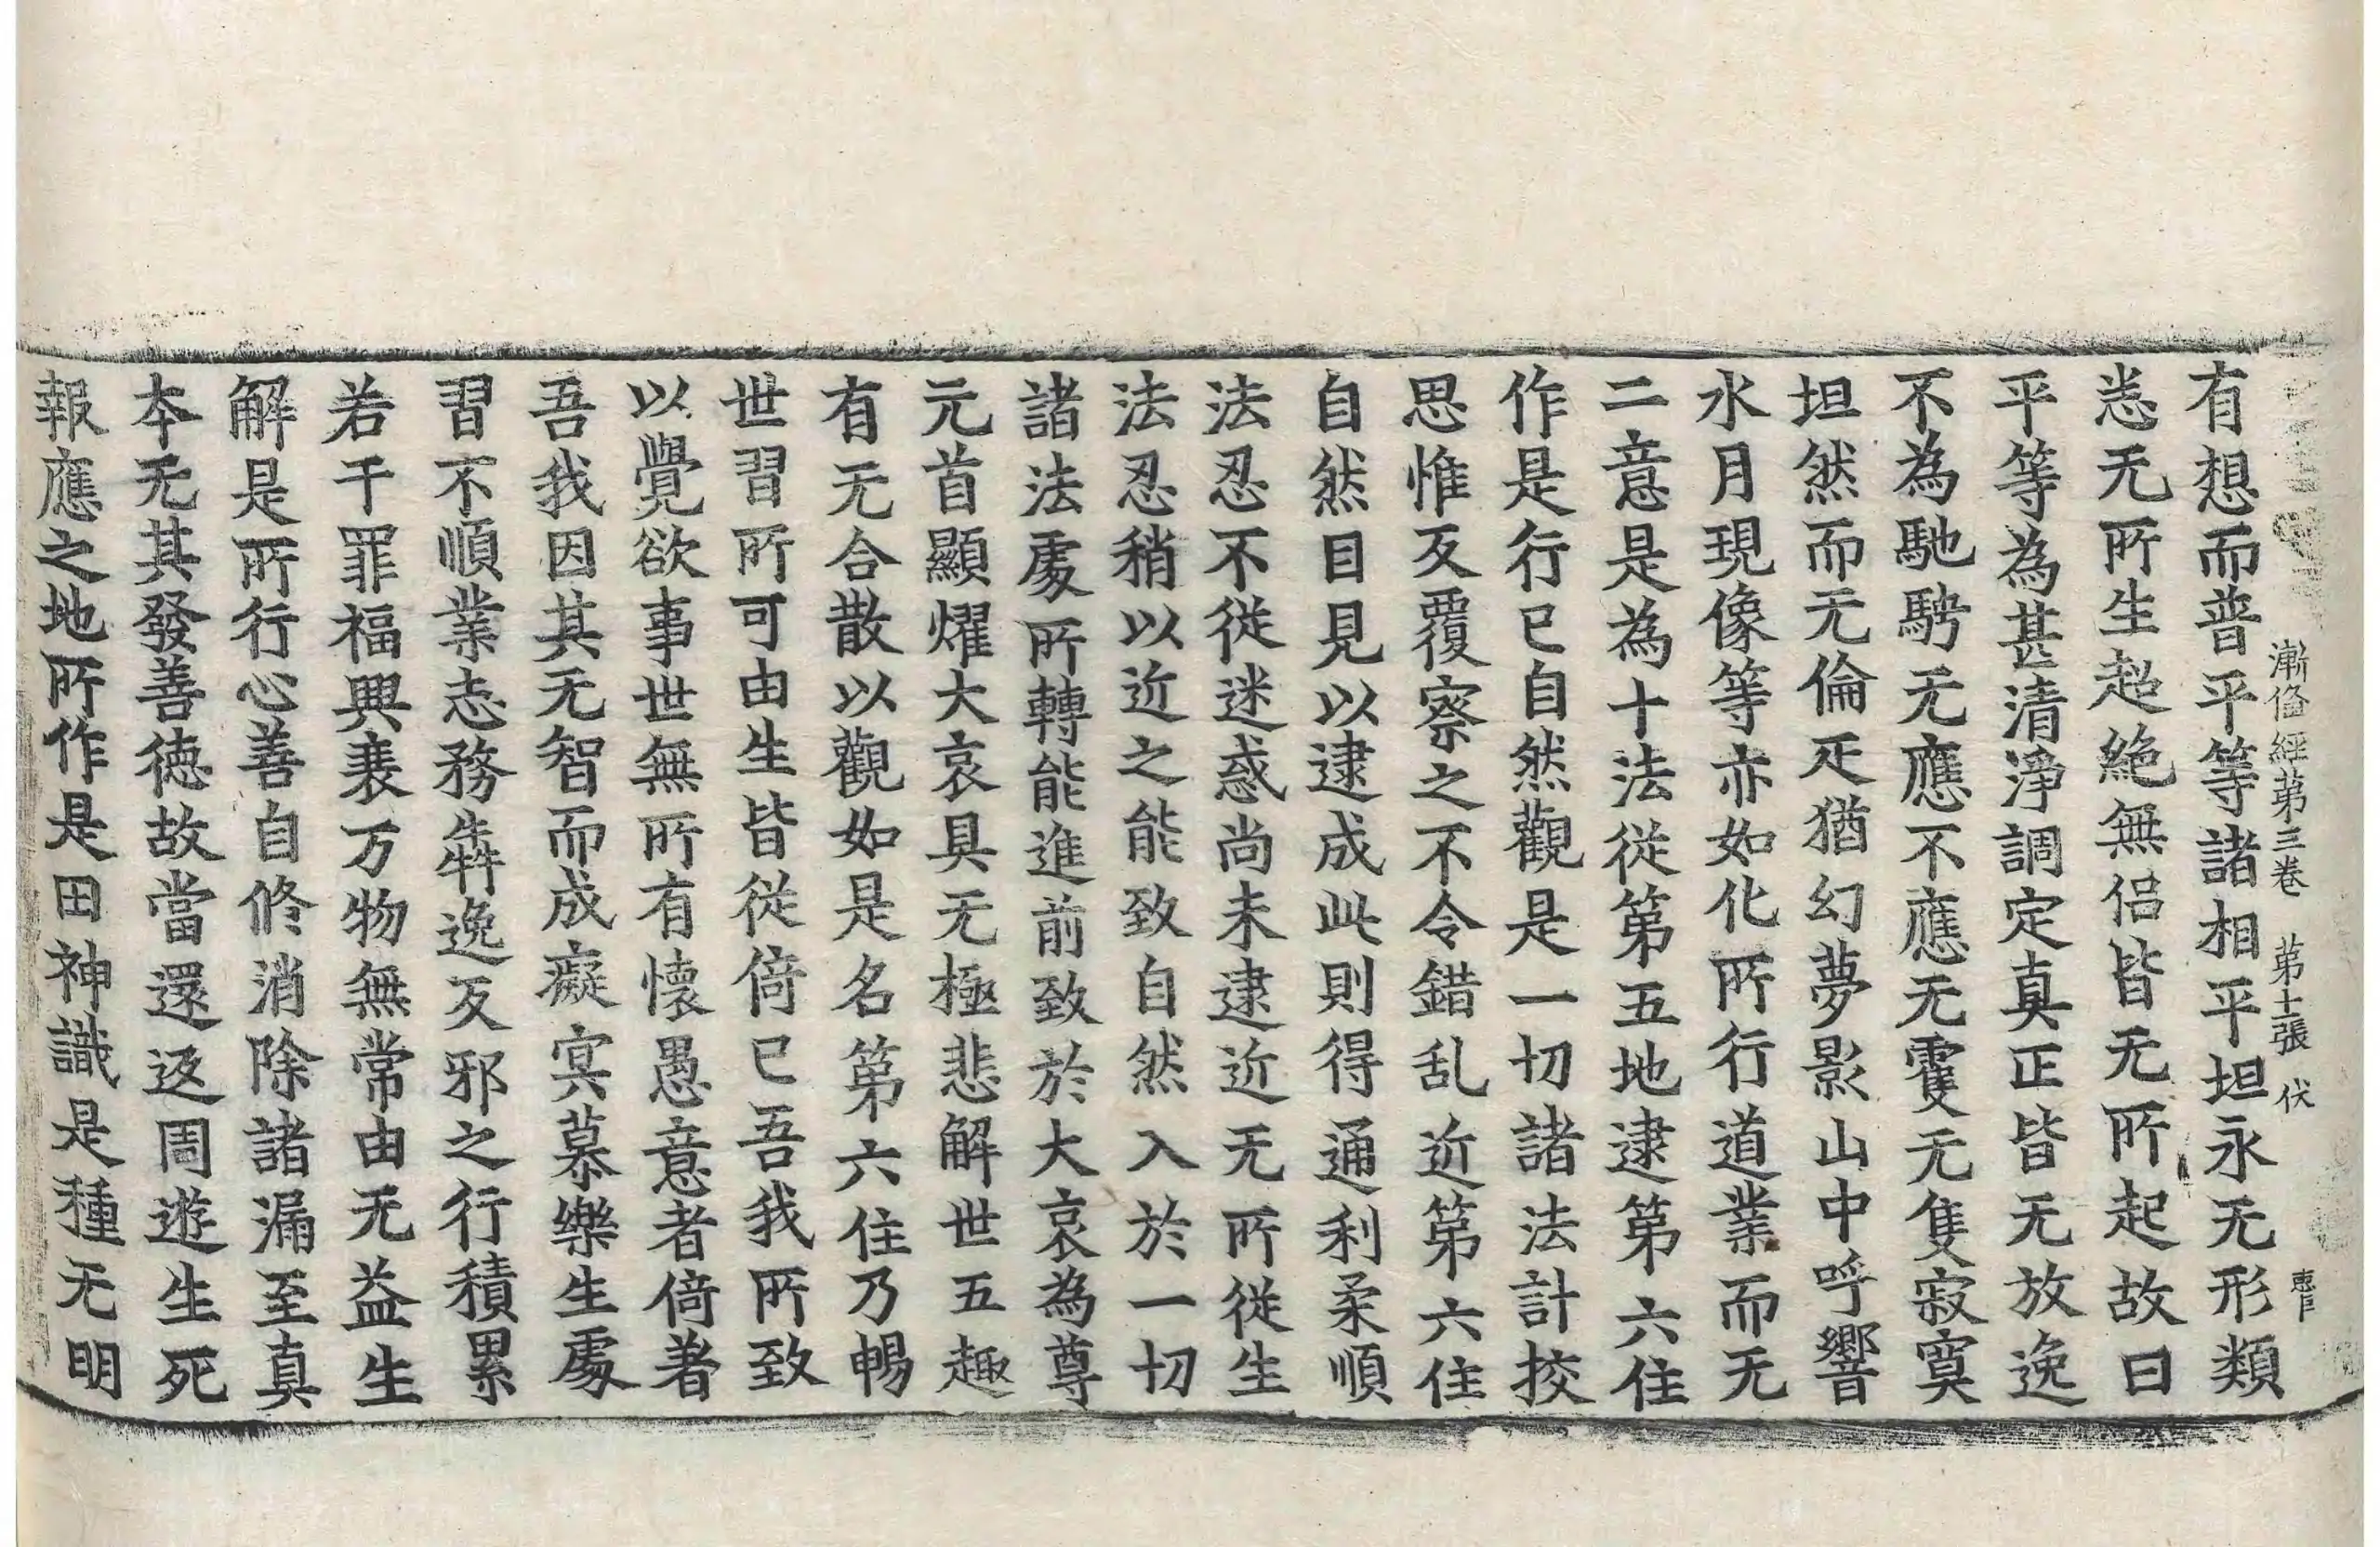 漸備經第三卷　第十二張　伏
有想而普平等諸相平坦永无形類
恙无所生超絶無侣皆无所起故曰
平等為甚清淨調定真正皆无放逸
不為馳騁无應不應无䨥无隻寂寞
坦然而无倫疋猶幻夢影山中呼響
水月現像等亦如化所行道業而无
二意是為十法從第五地逮第六住
作是行已自然觀是一切諸法計挍
思惟反覆察之不令錯乱近第六住
自然目見以逮成此則得通利柔順
法忍不從迷惑尚未逮近无所從生
法忍稍以近之能致自然入於一切
諸法䖏所轉能進前致於大哀為尊
元首顯燿大哀具无極悲解世五趣
有无合散以觀如是名第六住乃暢
世習所可由生皆從倚已吾我所致
以覺欲事世無所有懷愚意者倚著
吾我因其无智而成癡冥慕樂生䖏
習不順業志務犇逸反邪之行積累
若干罪福興衰万物無常由无益生
解是所行心善自修消除諸漏至真
本无其發善德故當還返周遊生死
報應之地所作是田神識是種无明